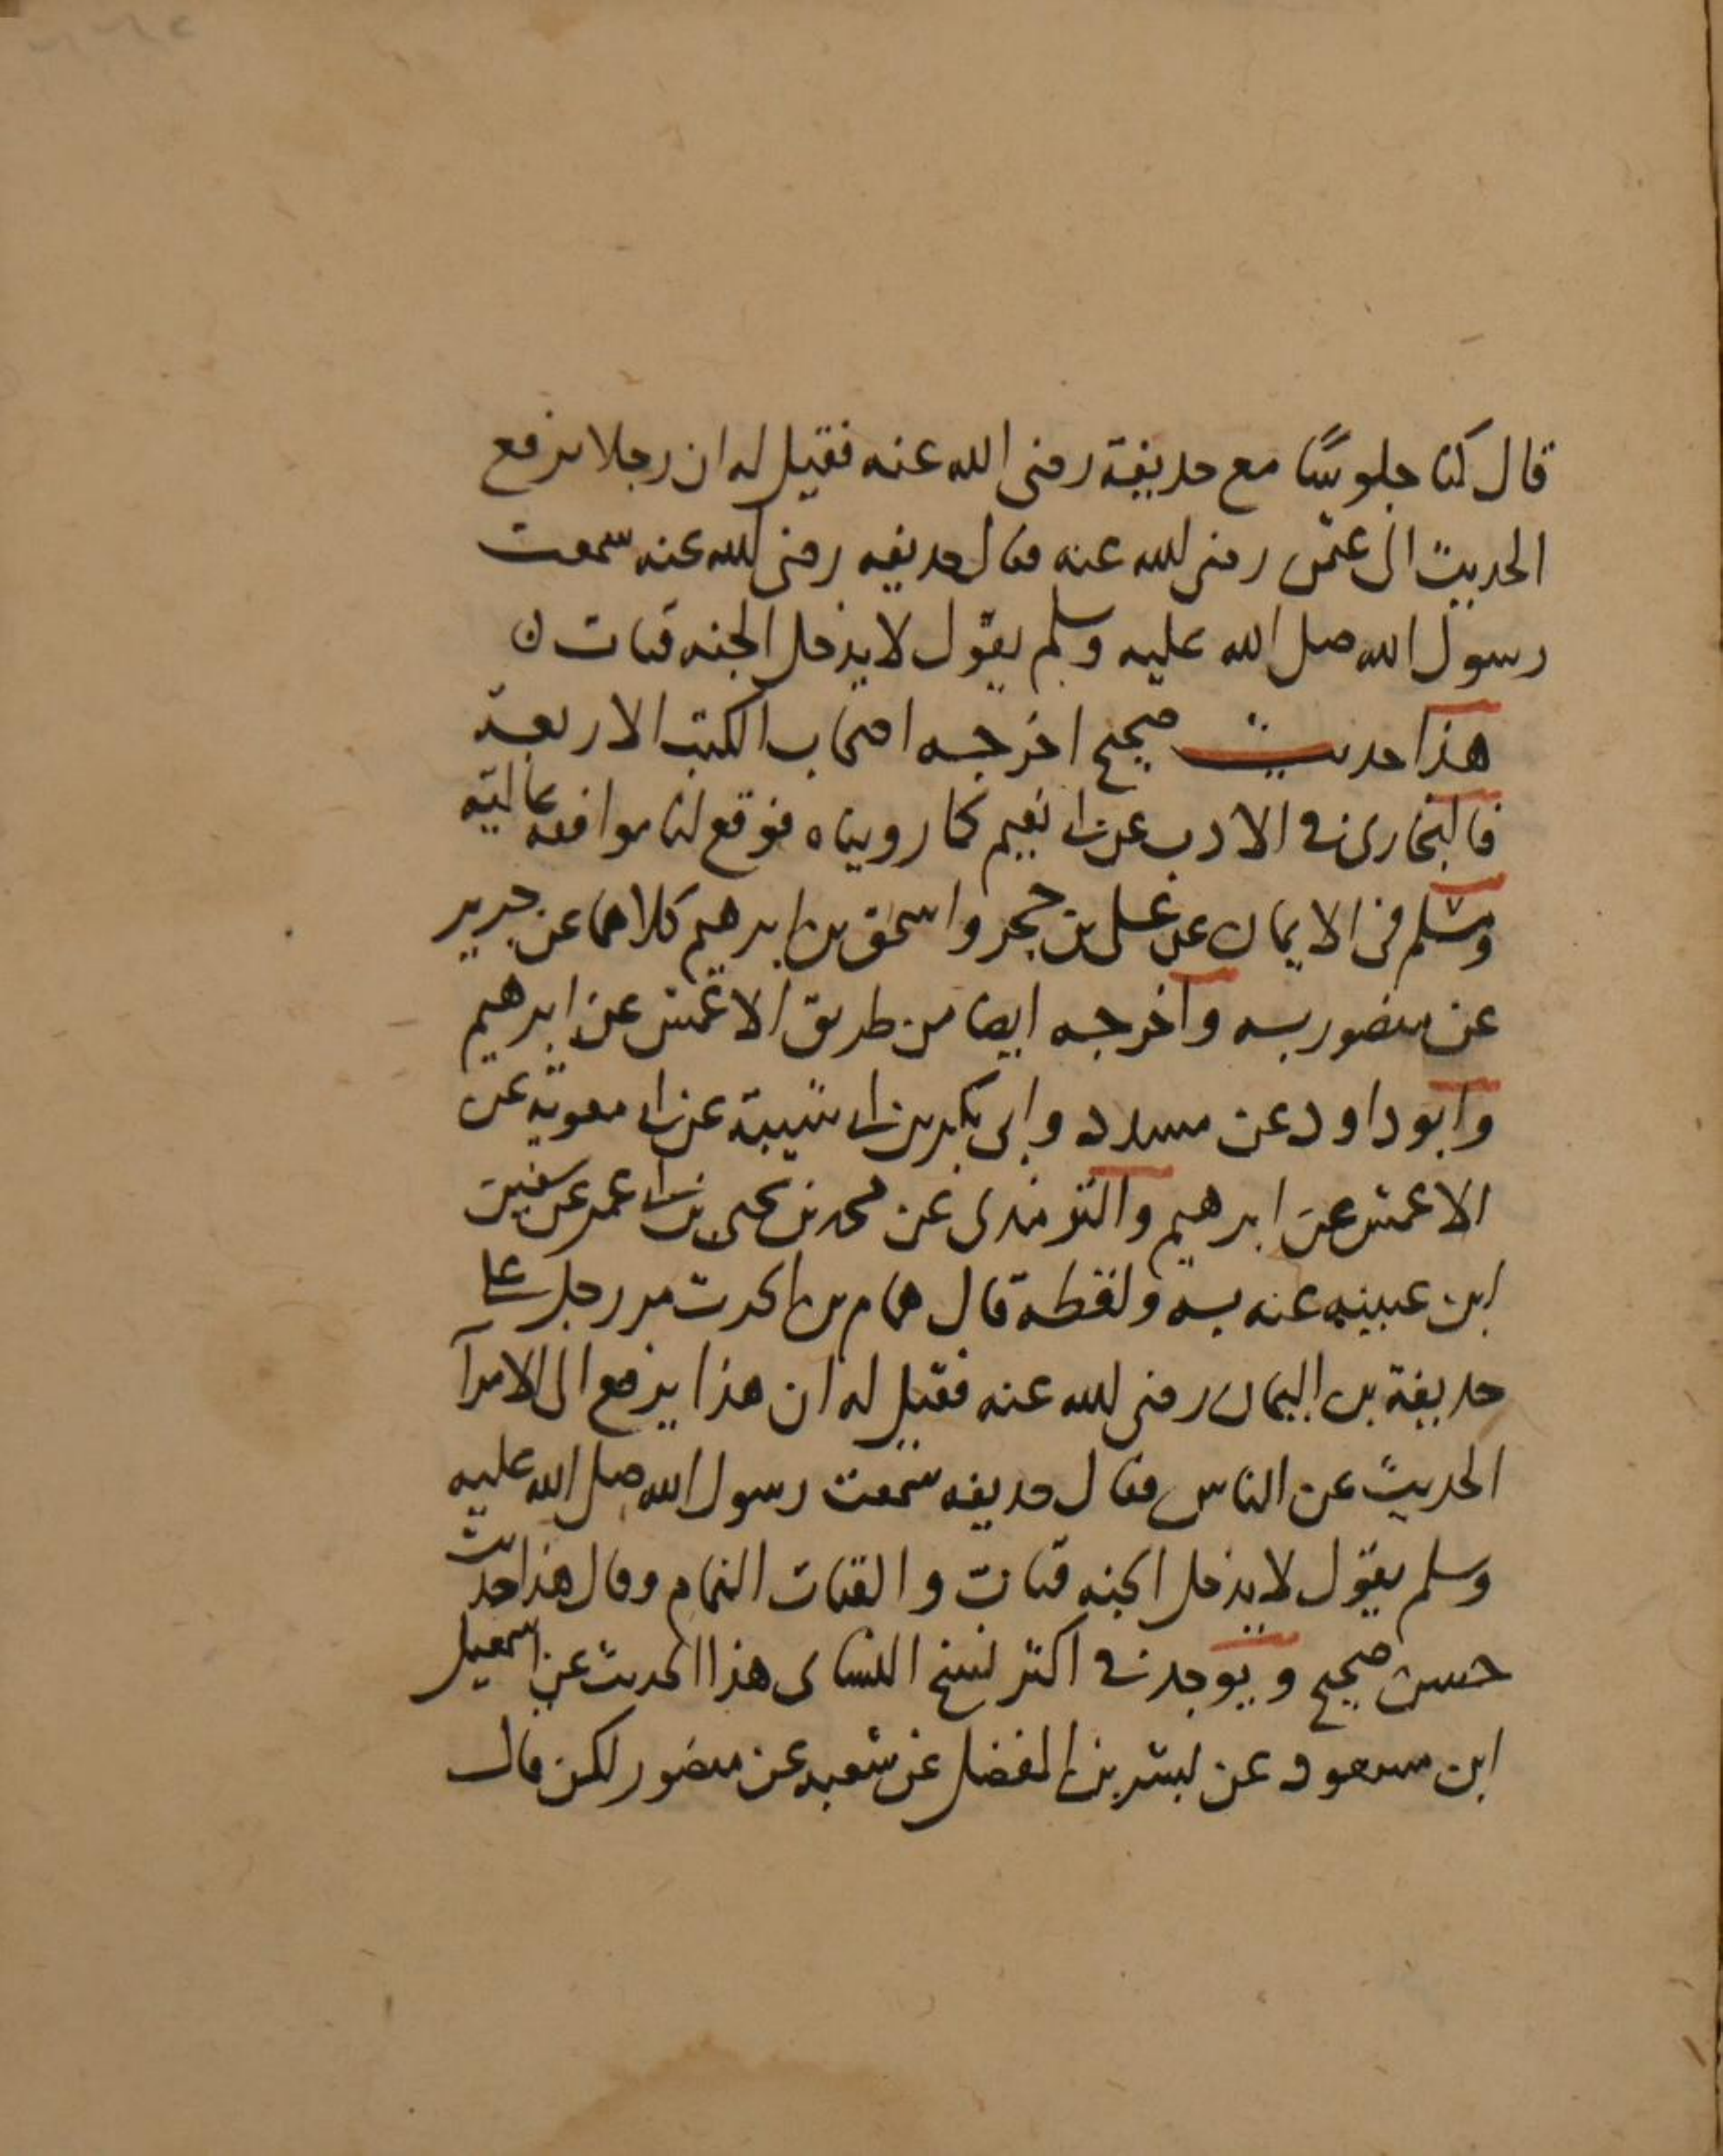 قال كنا جلوسًا مع حذيفة رضى الله عنه فقيل له ان رجلا يرفع
الحديث الى عثمن رضى الله عنه فقال حذيفه رضى الله عنه سمعت
رسول الله صلى الله عليه وسلم يقول لا يدخل الجنه قتات
هذا حديث صحيح اخرجه اصحاب الكتب الاربعة
فالبخارى فى الادب عن ابى نعيم كما رويناه فوقع لنا موافقه عاليه
ومسلم فى الايمان عن على بن حجر واسحق بن ابرهيم كلاهما عن جرير
عن منصور به واخرجه ايضا من طريق الاعمش عن ابرهيم
وابو داود عن مسدد وابى بكر بن ابى شيبة عن ابى معوية عن
الاعمش عن ابرهيم والترمذى عن محمد بن يحيى بن ابى عمر عن سفين
ابن عيينه عنه به ولفظه قال همام بن الحرث مر رجل على
حذيفة بن اليمان رضى الله عنه فقيل له ان هذا يرفع الى الامرآ
الحديث عن الناس فقال حذيفه سمعت رسول الله صلى الله عليه
وسلم يقول لا يدخل الجنه قتات والقتات النمام وقال هذا حديث
حسن صحيح ويوجد فى اكثر نسخ النساى هذا الحديث عن اسمعيل
ابن مسعود عن بشر بن المفضل عن شعبه عن منصور لكن قال